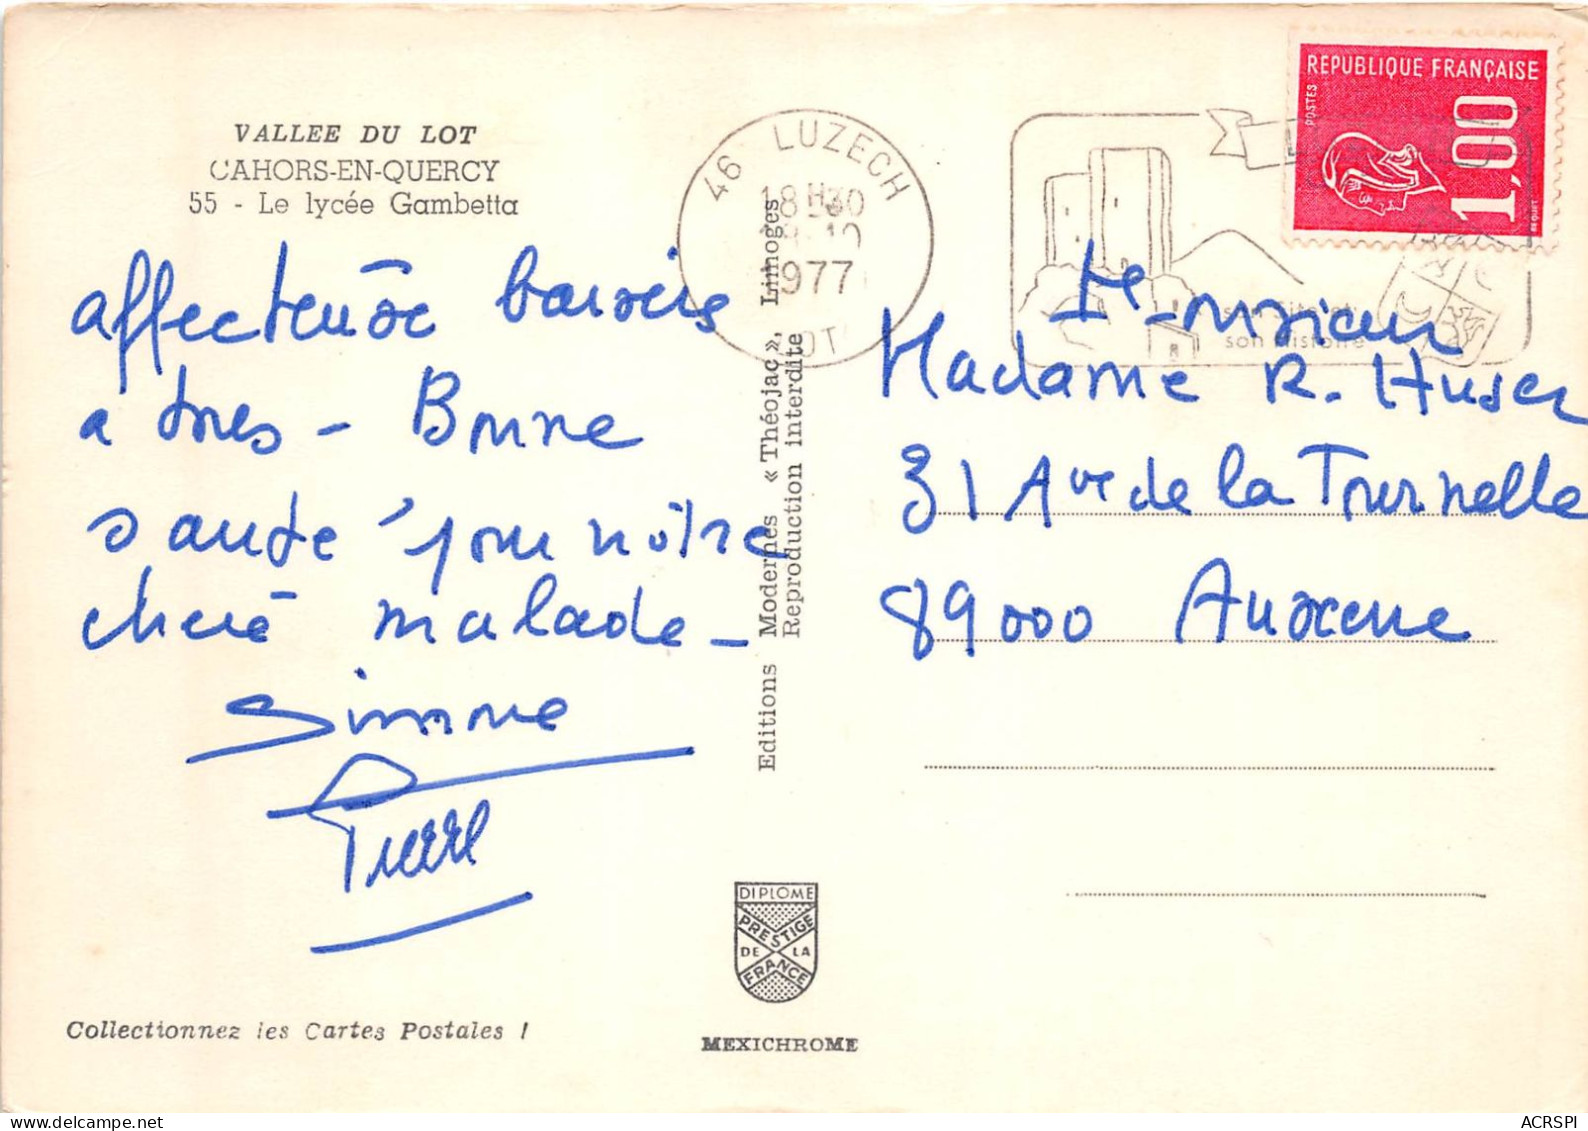 VALLEE DU LOT
CAHORS-EN-QUERCY
55 - Le lycée Gambetta
affecteuse baisers
a tres - Bonne
sante pour notre
chere malade -
Simone
Pierre
Collectionnez les Cartes Postales !
Editions Modernes « Théojac », Limoges
Reproduction interdite
DIPLOME
PRESTIGE
DE LA
FRANCE
MEXICHROME
46 LUZECH
18 H30
10
1977
LOT
son Histoire
REPUBLIQUE FRANÇAISE
POSTES
1,00
BEQUET
et monsieur
Madame R. Huser
31 Ave de la Tournelle
89000 Auxerre
delcampe.net
ACRSPI